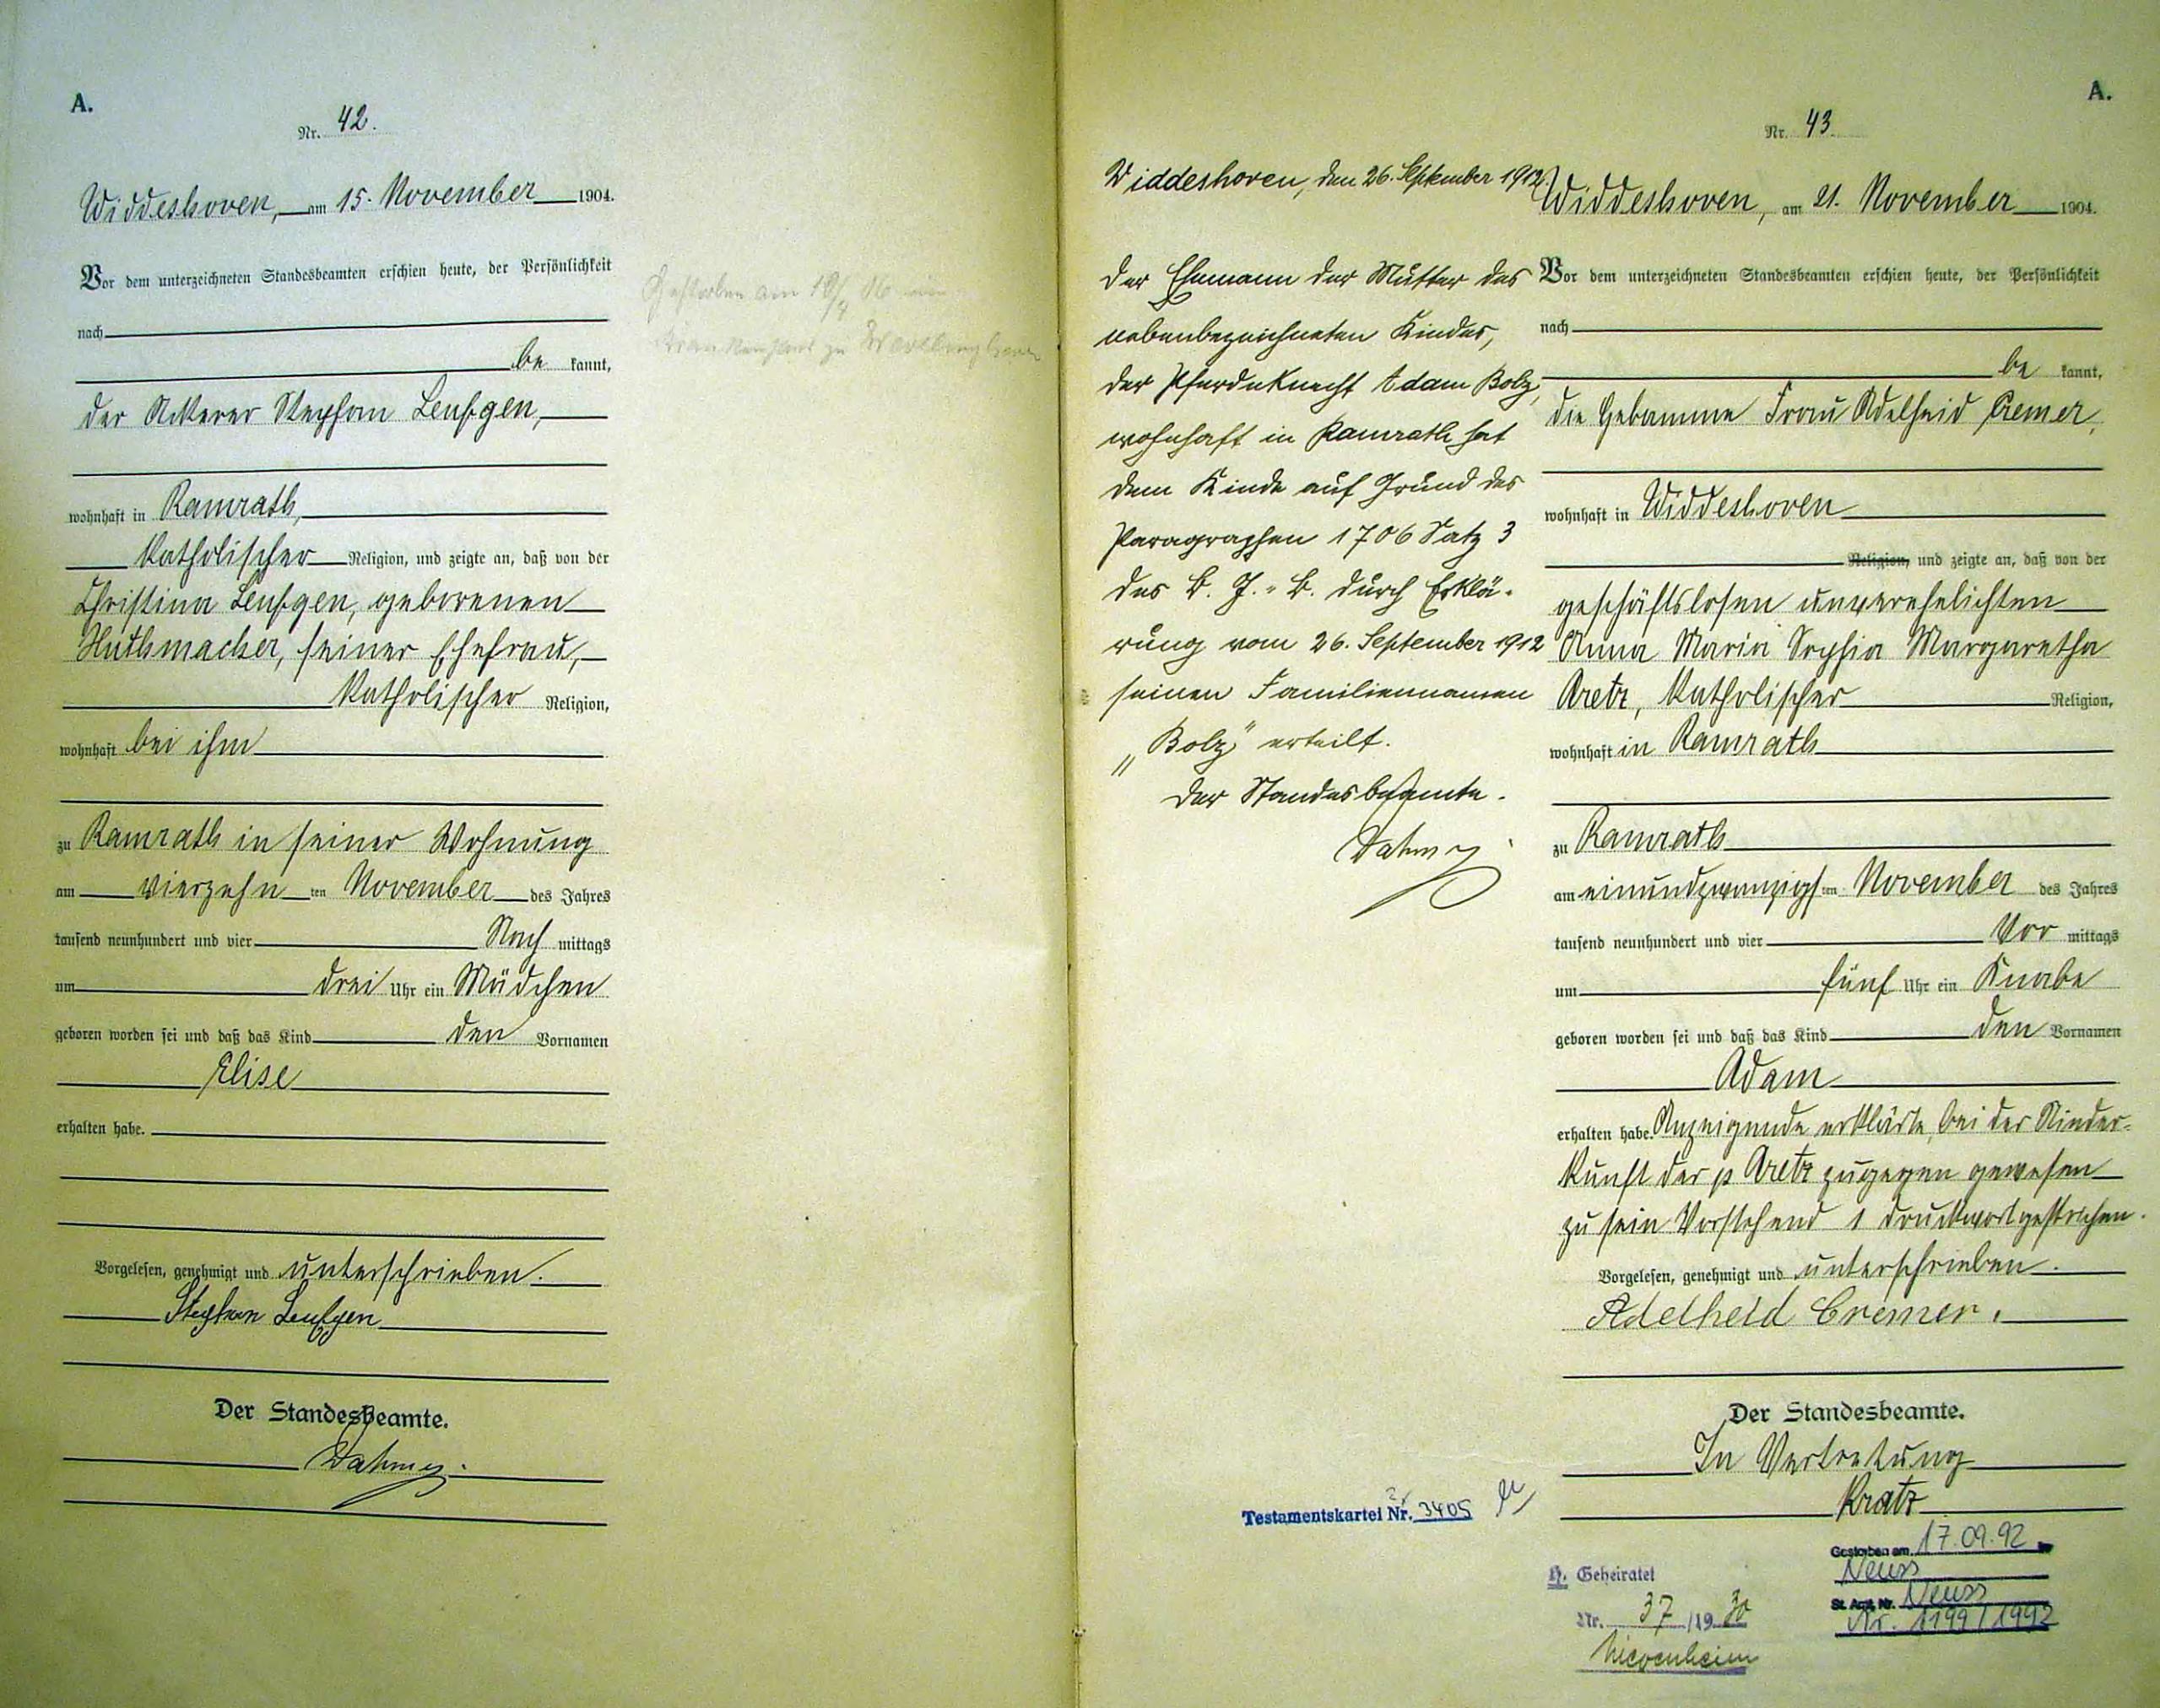 A.
Nr. 42.
Widdeshoven, am 15. November 1904.
Vor dem unterzeichneten Standesbeamten erschien heute, der Persönlichkeit
nach
be kannt,
der Ackerer Stephan Leufgen,
wohnhaft in Ramrath,
katholischer Religion, und zeigte an, daß von der
Christina Leufgen, geborenen
Huthmacher, seiner Ehefrau,
katholischer Religion,
wohnhaft bei ihm
zu Ramrath in seiner Wohnung
am vierzehn ten November des Jahres
tausend neunhundert und vier Nach mittags
um drei Uhr ein Mädchen
geboren worden sei und daß das Kind den Vornamen
Elise
erhalten habe.
Vorgelesen, genehmigt und unterschrieben.
Stephan Leufgen
Der Standesbeamte.
Gestorben am
Krankenhaus zu
A.
Nr. 43.
Widdeshoven, den 26. September 1912
Der Ehemann der Mutter des
nebenbezeichneten Kindes,
der Pferdeknecht Adam Bolz,
wohnhaft in Ramrath hat
dem Kinde auf Grund des
Paragraphen 1706 Satz 3
des B. G.-B. durch Erklä-
rung vom 26. September 1912
seinen Familiennamen
„Bolz" erteilt.
Der Standesbeamte.
Widdeshoven, am 21. November 1904.
Vor dem unterzeichneten Standesbeamten erschien heute, der Persönlichkeit
nach
be kannt,
die Hebamme Frau Adelheid Cremer,
wohnhaft in Widdeshoven
Religion, und zeigte an, daß von der
geschäftslosen unverehelichten
Anna Maria Sophia Margaretha
Aretz, katholischer Religion,
wohnhaft in Ramrath
zu Ramrath
am einundzwanzigsten November des Jahres
tausend neunhundert und vier Vor mittags
um fünf Uhr ein Knabe
geboren worden sei und daß das Kind den Vornamen
Adam
erhalten habe. Anzeigende erklärte, bei der Nieder-
kunft der p Aretz zugegen gewesen
zu sein Vorstehend 1 Druckwort gestrichen.
Vorgelesen, genehmigt und unterschrieben.
Adelheid Cremer.
Der Standesbeamte.
In Vertretung
Kratz
Testamentskartei Nr. 3405
H. Geheiratet
Nr. 37/1930
Nievenheim
Gestorben am 17.09.92
Neuss
St. Amt. Nr. Neuss
Nr. 1199/1992